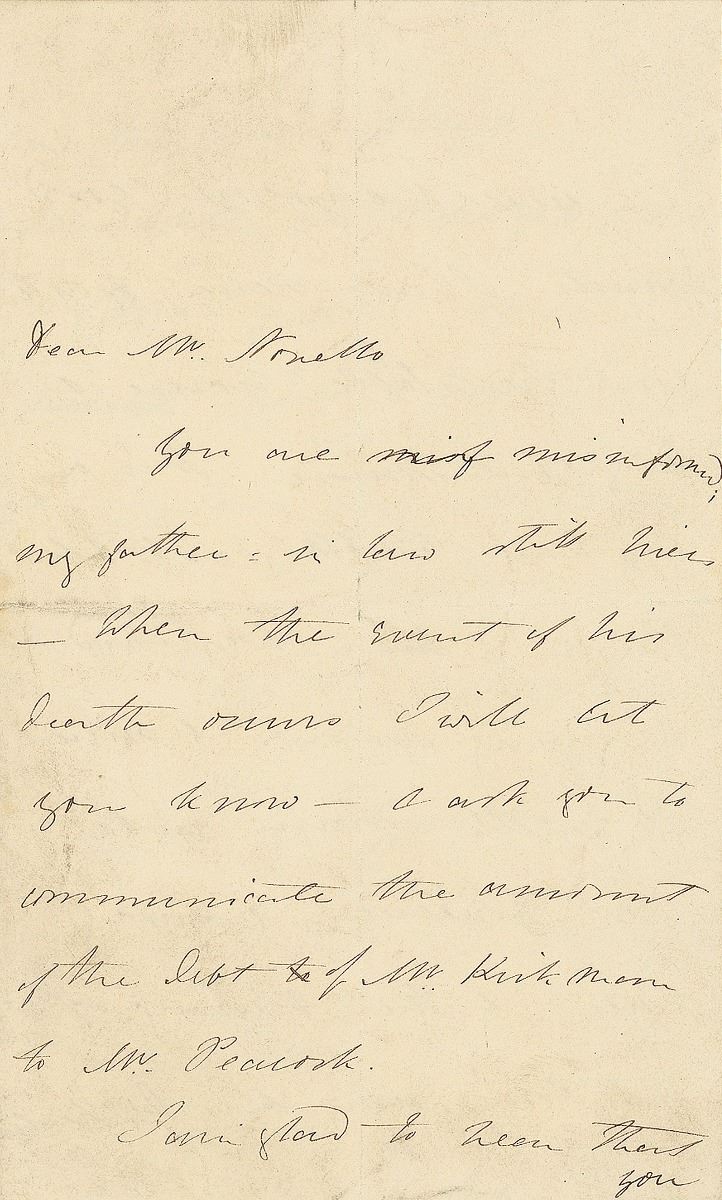 Dear Mr. Novello
You are misf misinformed;
my father=in law still lives
— When the event of his
death occurs I will let
you know — & ask you to
communicate the amount
of the debt to of Mr. Kirkman
to Mr. Peacock.
I am glad to hear that
you